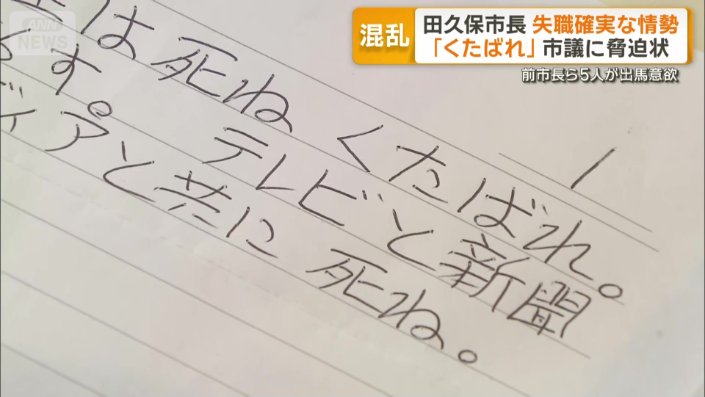 ANN
NEWS
混乱
田久保市長 失職確実な情勢
「くたばれ」市議に脅迫状
前市長ら5人が出馬意欲
1
は死ね くたばれ。
ます。 テレビと新聞
ディアと共に 死ね。